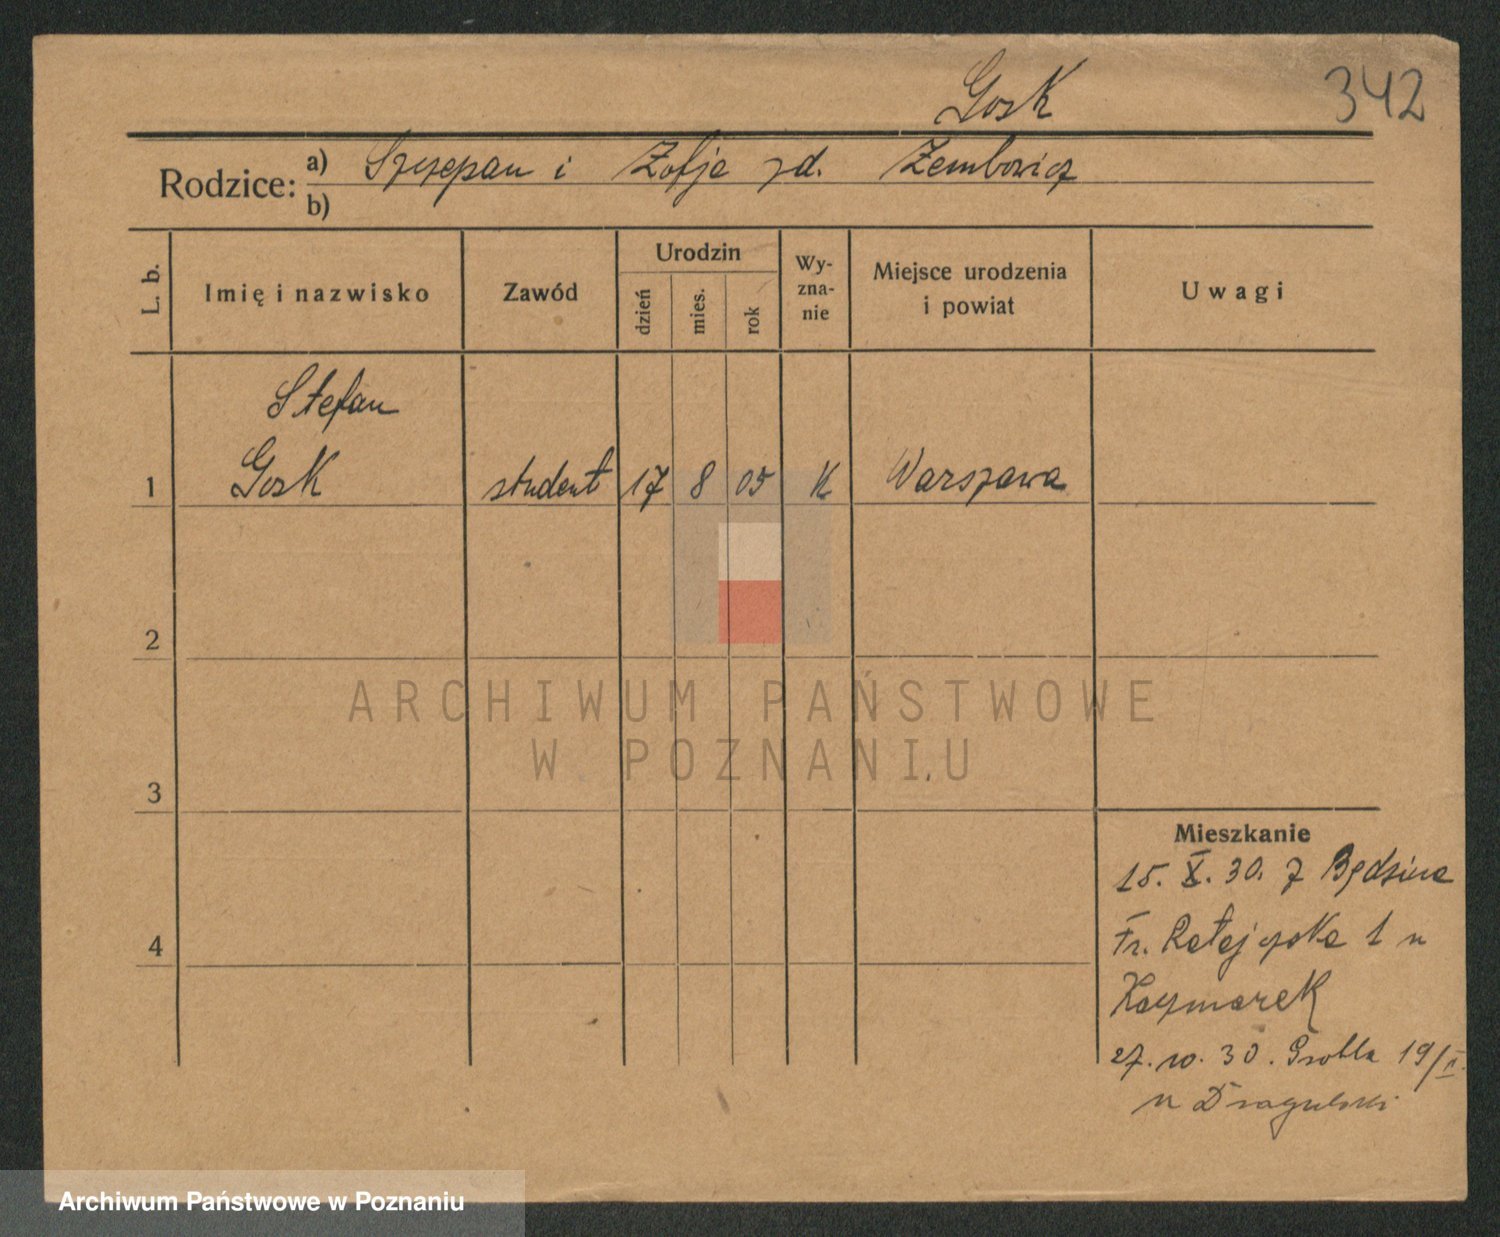 Gosk
342
Rodzice: a) Szczepan i Zofja zd. Zembowicz
b)
L. b.
Imię i nazwisko
Zawód
Urodzin
dzień
mies.
rok
Wy-
zna-
nie
Miejsce urodzenia
i powiat
Uwagi
Stefan
1 Gosk student 17 8 05 K Warszawa
2
3
4
Mieszkanie
15. X. 30. z Będzina
Fr. Ratajczaka 1 u
Kaczmarek
27. 10. 30. Grobla 19/II.
u Dragulski
ARCHIWUM PAŃSTWOWE
W POZNANIU
Archiwum Państwowe w Poznaniu